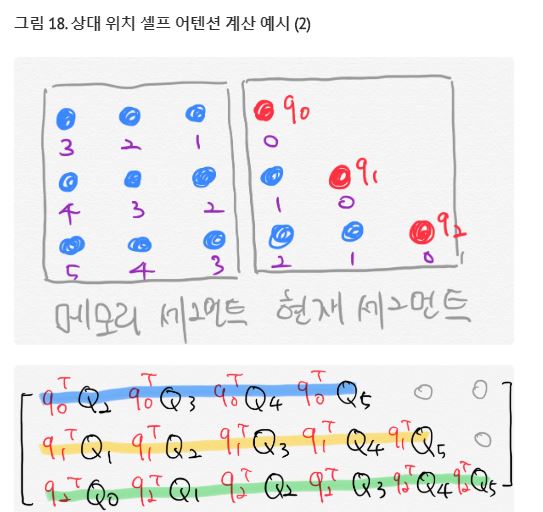 그림 18. 상대 위치 셀프 어텐션 계산 예시 (2)
q₀
3 2 1 0
q₁
4 3 2 1 0
q₂
5 4 3 2 1 0
메모리 세그먼트 현재 세그먼트
q₀ᵀQ₂ q₀ᵀQ₃ q₀ᵀQ₄ q₀ᵀQ₅ 0 0
q₁ᵀQ₁ q₁ᵀQ₂ q₁ᵀQ₃ q₁ᵀQ₄ q₁ᵀQ₅ 0
q₂ᵀQ₀ q₂ᵀQ₁ q₂ᵀQ₂ q₂ᵀQ₃ q₂ᵀQ₄ q₂ᵀQ₅